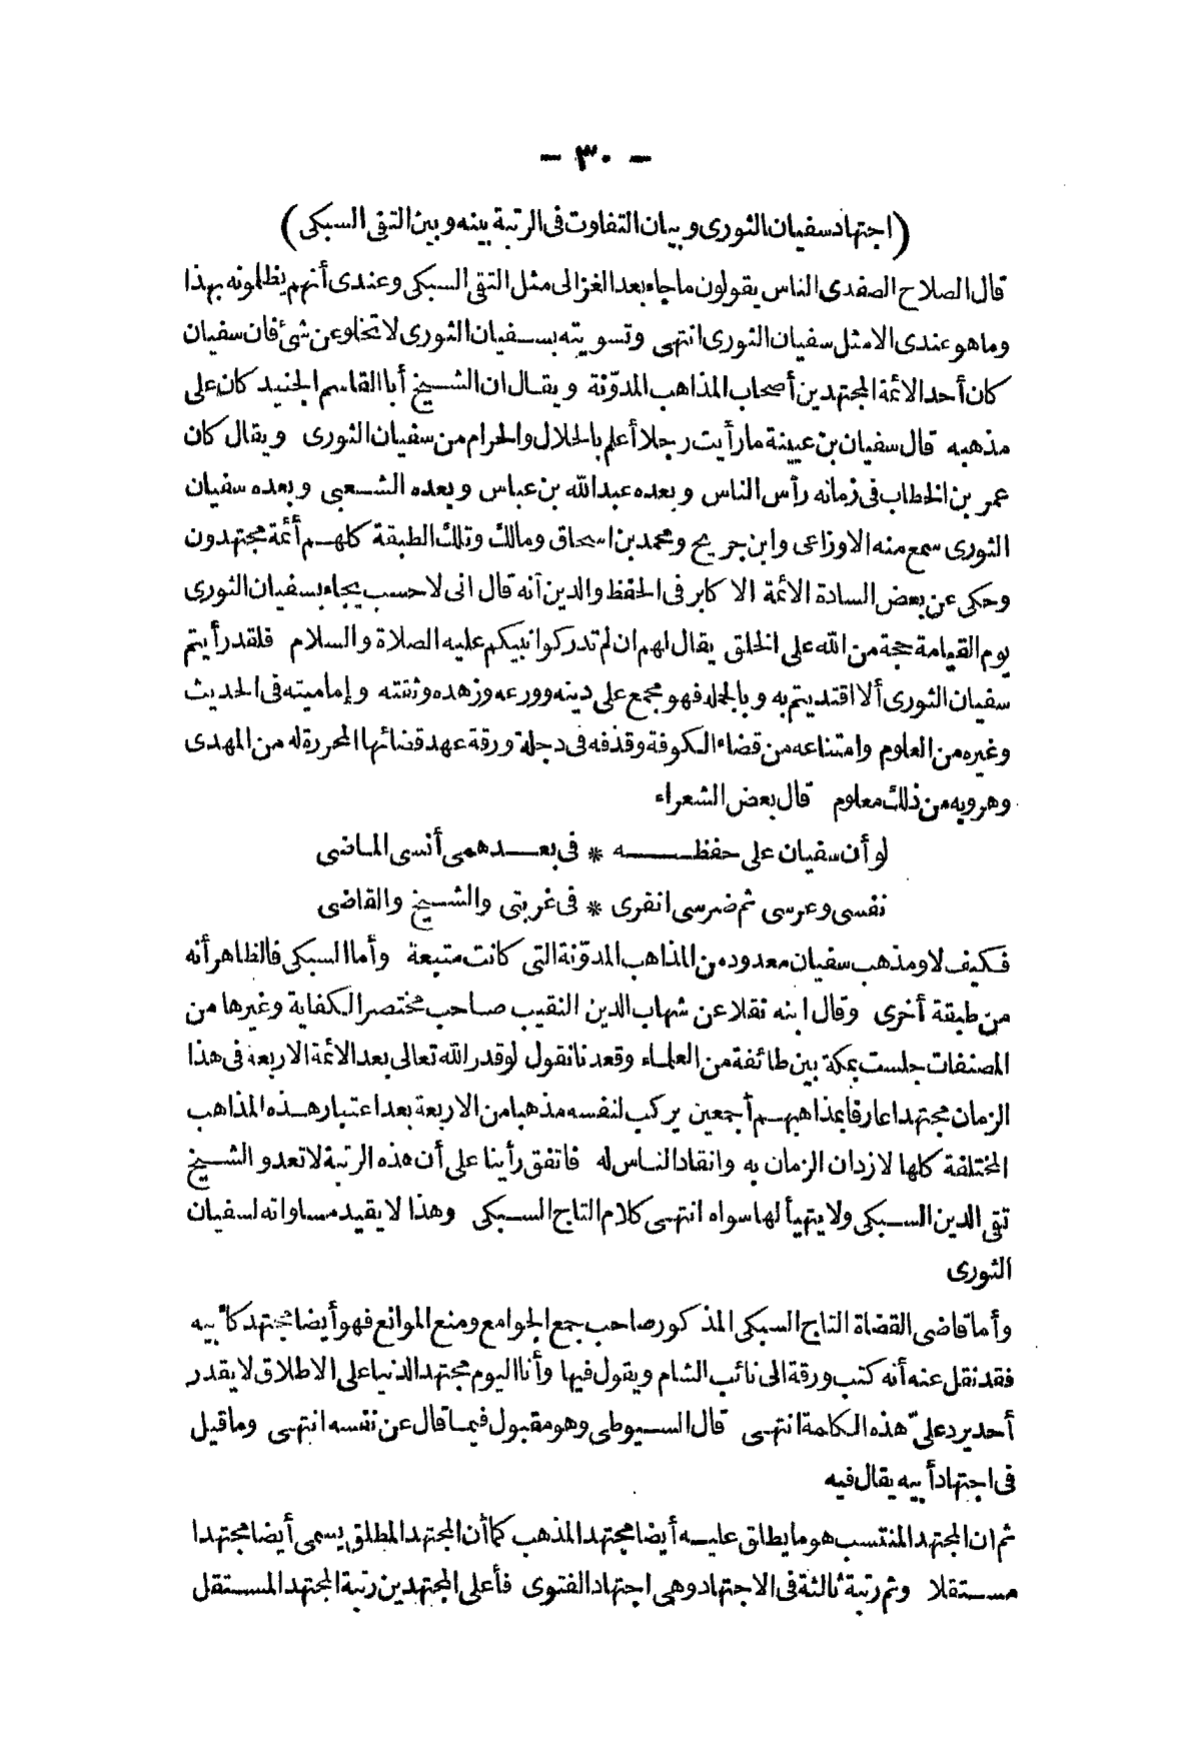 - ٣٠ -
(اجتهاد سفيان الثورى وبيان التفاوت فى الرتبة بينه وبين التقى السبكى)
قال الصلاح الصفدى الناس يقولون ما جاء بعد الغزالى مثل التقى السبكى وعندى أنهم يظلمونه بهذا
وما هو عندى الا مثل سفيان الثورى انتهى وتسويته بسفيان الثورى لا تخلو عن شئ فان سفيان
كان أحد الائمة المجتهدين أصحاب المذاهب المدوّنة ويقال ان الشيخ أبا القاسم الجنيد كان على
مذهبه قال سفيان بن عيينة ما رأيت رجلا أعلم بالحلال والحرام من سفيان الثورى ويقال كان
عمر بن الخطاب فى زمانه رأس الناس وبعده عبد الله بن عباس وبعده الشعبى وبعده سفيان
الثورى سمع منه الاوزاعى وابن جريج ومحمد بن اسحاق ومالك وتلك الطبقة كلهم أئمة مجتهدون
وحكى عن بعض السادة الائمة الاكابر فى الحفظ والدين أنه قال انى لاحسب يجاء بسفيان الثورى
يوم القيامة حجة من الله على الخلق يقال لهم ان لم تدركوا نبيكم عليه الصلاة والسلام فلقد رأيتم
سفيان الثورى ألا اقتديتم به وبالجملة فهو مجمع على دينه وورعه وزهده وثقته وإماميته فى الحديث
وغيره من العلوم وامتناعه من قضاء الكوفة وقذفه فى دجلة ورقة عهد قضائها المحررة له من المهدى
وهروبه من ذلك معلوم قال بعض الشعراء
لو أن سفيان على حفظه * فى بعد همى أنسى الماضى
نفسى وعرسى ثم ضرسى انقرى * فى غربتى والشيخ والقاضى
فكيف لا ومذهب سفيان معدود من المذاهب المدوّنة التى كانت متبعة وأما السبكى فالظاهر أنه
من طبقة أخرى وقال ابنه نقلا عن شهاب الدين النقيب صاحب مختصر الكفاية وغيرها من
المصنفات جلست بمكة بين طائفة من العلماء وقعدنا نقول لو قدر الله تعالى بعد الائمة الاربعة فى هذا
الزمان مجتهدا عارفا بمذاهبهم أجمعين يركب لنفسه مذهبا من الاربعة بعد اعتبار هذه المذاهب
المختلفة كلها لازدان الزمان به وانقاد الناس له فاتفق رأينا على أن هذه الرتبة لا تعدو الشيخ
تقى الدين السبكى ولا يتهيأ لها سواه انتهى كلام التاج السبكى وهذا لا يفيد مساواته لسفيان
الثورى
وأما قاضى القضاة التاج السبكى المذكور صاحب جمع الجوامع ومنع الموانع فهو أيضا مجتهد كأبيه
فقد نقل عنه أنه كتب ورقة الى نائب الشام ويقول فيها وأنا اليوم مجتهد الدنيا على الاطلاق لا يقدر
أحد يرد علىّ هذه الكلمة انتهى قال السيوطى وهو مقبول فيما قال عن نفسه انتهى وما قيل
فى اجتهاد أبيه يقال فيه
ثم ان المجتهد المنتسب هو ما يطلق عليه أيضا مجتهد المذهب كما أن المجتهد المطلق يسمى أيضا مجتهدا
مستقلا وثم رتبة ثالثة فى الاجتهاد وهى اجتهاد الفتوى فأعلى المجتهدين رتبة المجتهد المستقل